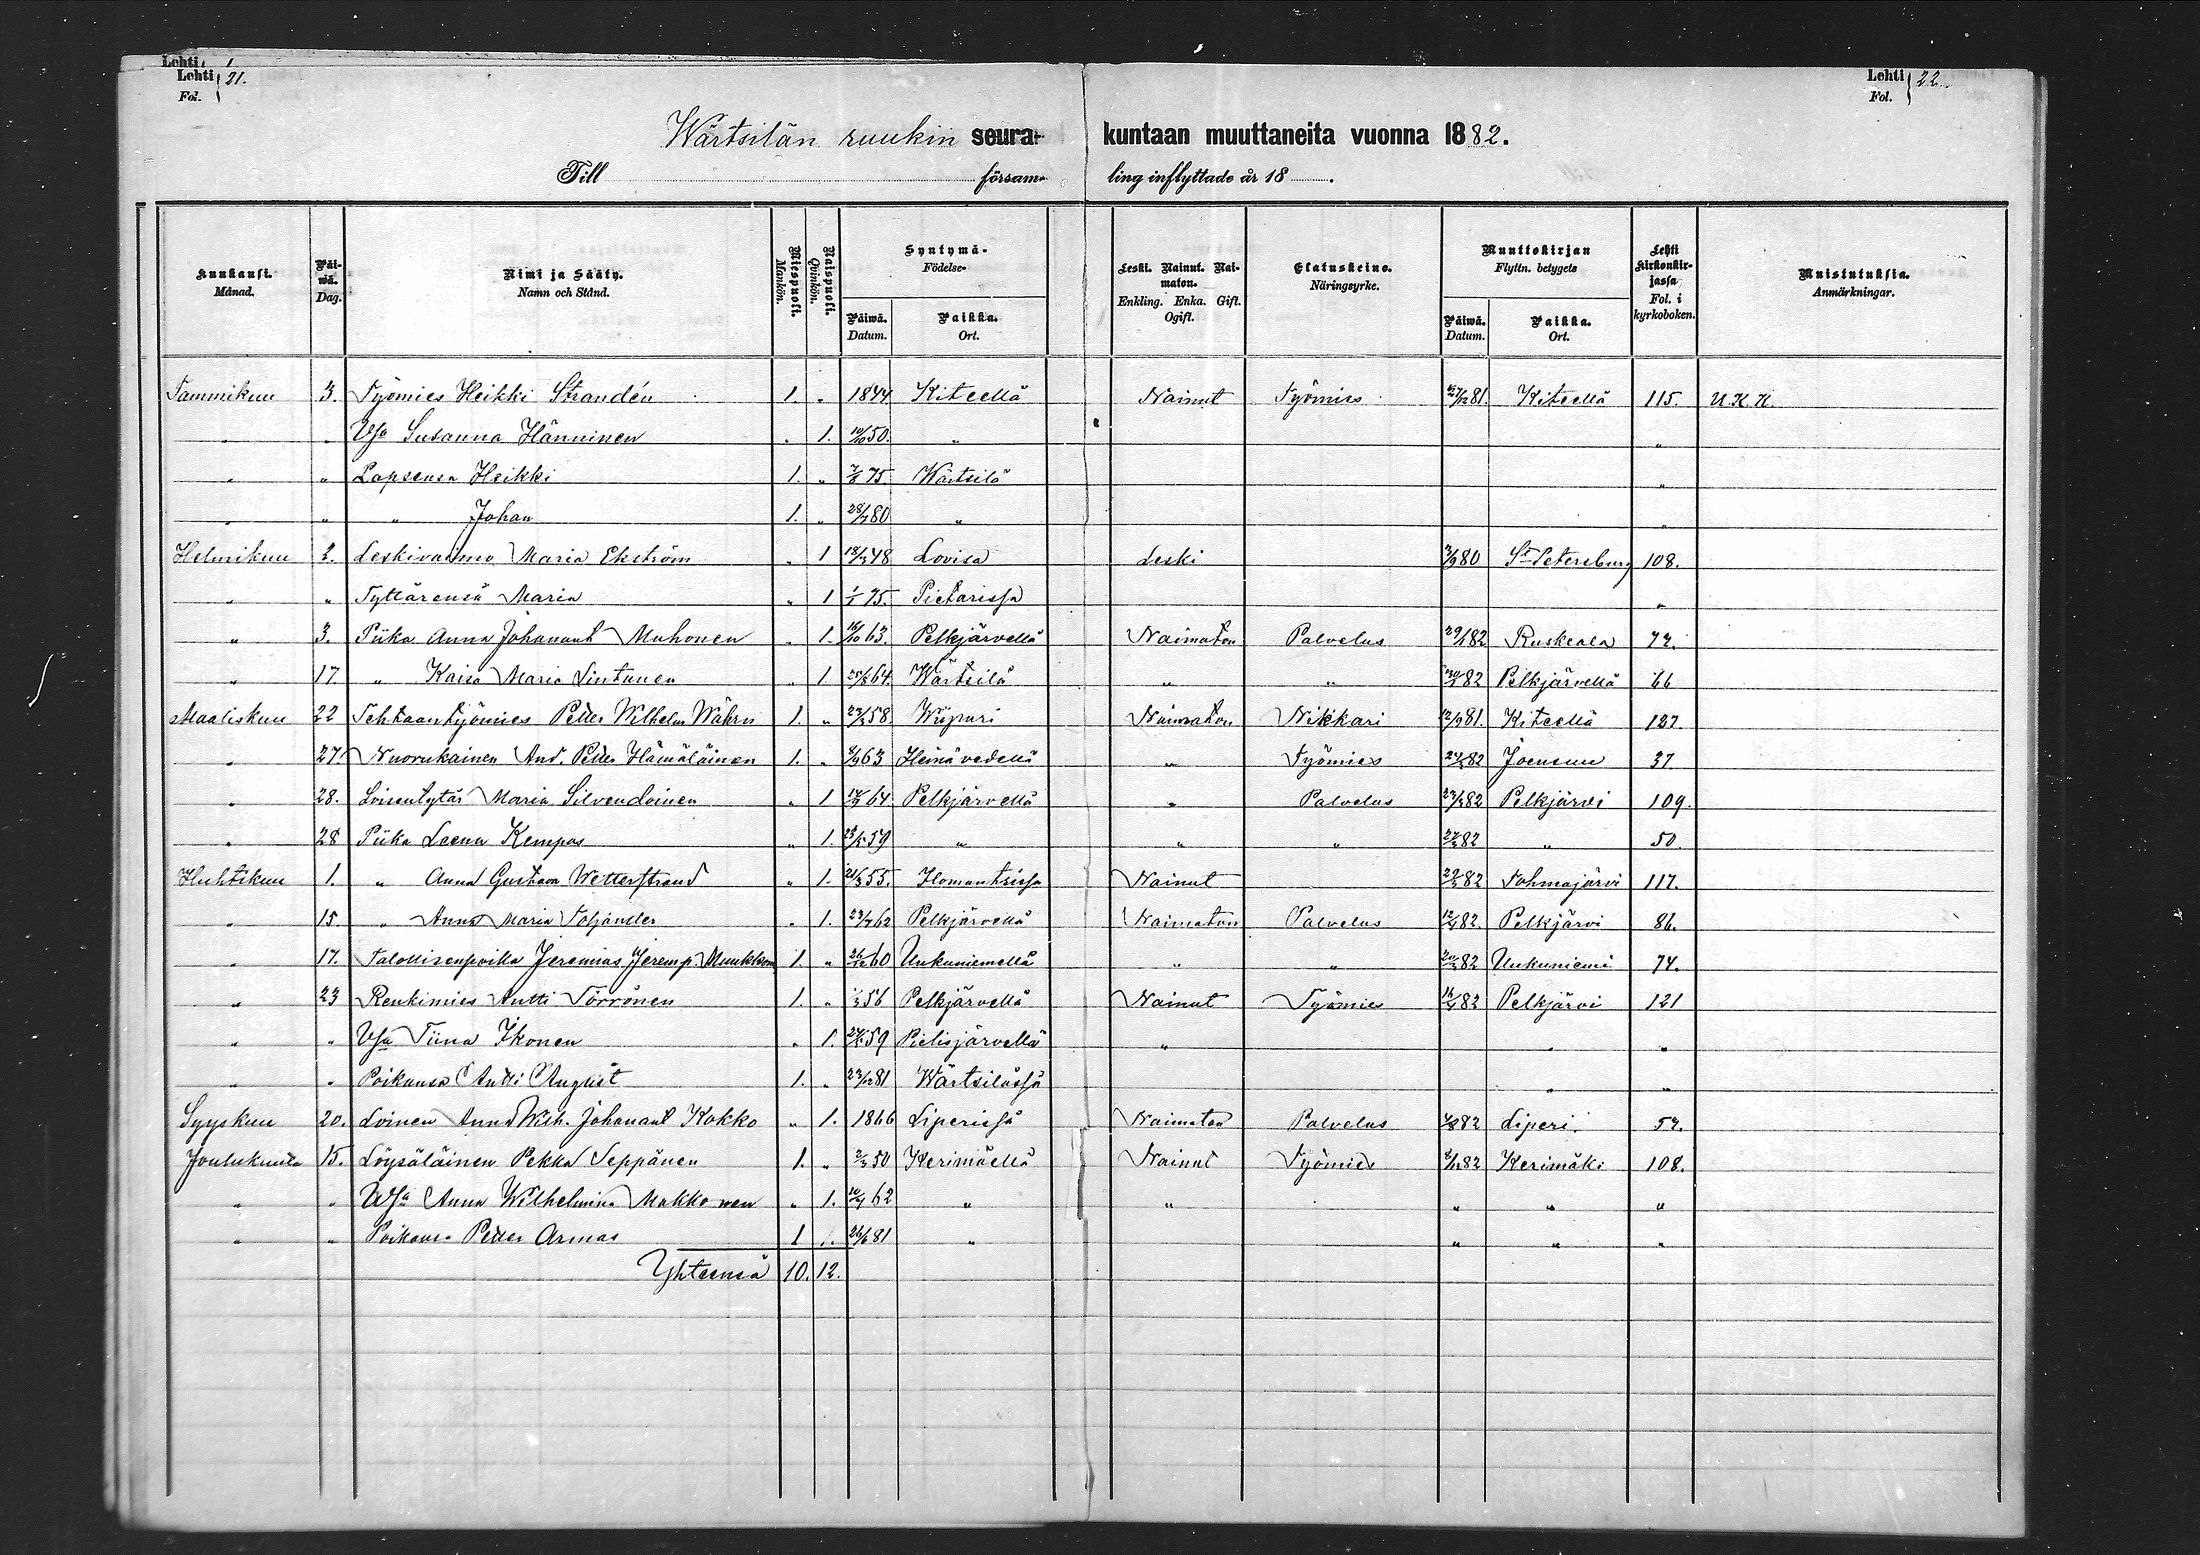 Lehti 1
Lehti 21.
Fol.
Lehti 22.
Fol.
Wärtsilän ruukin seura- kuntaan muuttaneita vuonna 1882.
Till församling inflyttade år 18 .
Kuukausi. Månad. Päiwä. Dag. Nimi ja Sääty. Namn och Stånd. Miespuoli. Mankön. Naispuoli. Qvinkön. Syntymä- Födelse- Päiwä. Datum. Paikka. Ort. Leski. Nainut. Naimaton. Enkling. Enka. Gift. Ogift. Elatuskeino. Näringsyrke. Muuttokirjan Flyttn. betygets Päiwä. Datum. Paikka. Ort. Lehti kirkonkirjassa Fol. i kyrkoboken. Muistutuksia. Anmärkningar.
Tammikuu 3. Työmies Heikki Strandén 1. " 1844 Kiteellä Nainut Työmies 27/12 81. Kiteellä 115. U.K.K.
" " Wsa Susanna Hänninen " 1. 10/10 50. " "
" " Lapsensa Heikki 1. " 75. Wärtsilä "
" " " Johan 1. " 80 " "
Helmikuu 2. Leskivaimo Maria Ekström " 1 48 Lovisa Leski 80 St Petersburg 108.
" " Tyttärensä Maria " 1 1/1 75. Pietarissa "
" 3. Piika Anna Johanant Muhonen " 1. 16/10 63. Pelkjärvellä Naimaton Palvelus 29/1 82 Ruskeala 72.
" 17. " Kaisa Maria Sintonen " 1 64. Wärtsilä " " 82 Pelkjärvellä 66
Maaliskuu 22 Tehtaantyömies Petter Wilhelm Wåhrn 1. " 58. Wiipuri Naimaton Nikkari 81. Kiteellä 137.
" 27. Nuorukainen And. Petter Hämäläinen 1. " 8/9 63 Heinävedellä " Työmies 82 Joensuu 37
" 28. Loisentytär Maria Silvendoinen " 1 64. Pelkjärvellä " Palvelus 82 Pelkjärvi 109.
" 28 Piika Leena Kempas " 1. 59 " " " 82 " 50.
Huhtikuu 1. " Anna Gustava Wetterstrand " 1. 21/3 55. Ilomantsissa Nainut 82 Tohmajärvi 117.
" 15. " Anna Maria Toljander " 1. 62 Pelkjärvellä Naimaton Palvelus 12/4 82. Pelkjärvi 86.
" 17. Talollisenpoika Jeremias Jeremp. Muukkonen 1. " 26/12 60 Uukuniemellä " " 82 Uukuniemi 74.
" 23 Renkimies Antti Törrönen 1. " 56 Pelkjärvellä Nainut Työmies 16/4 82 Pelkjärvi 121
" " Wsa Tiina Ikonen " 1. 59 Pielisjärvellä " " "
" " Poikansa Antti August 1. " 23/12 81 Wärtsilässä " "
Syyskuu 20. Loinen Anna Wilh. Johanant Kokko " 1. 1866 Liperissä Naimaton Palvelus 82 Liperi 52.
Joulukuulla 15. Löysäläinen Pekka Seppänen 1. " 2/2 50 Kerimäellä Nainut Työmies 82 Kerimäki 108.
" " Wsa Anna Wilhelmina Makkonen " 1. 62 " " " " "
" " Poikansa Petter Armas 1 " 26/6 81 " " " "
Yhteensä 10. 12.